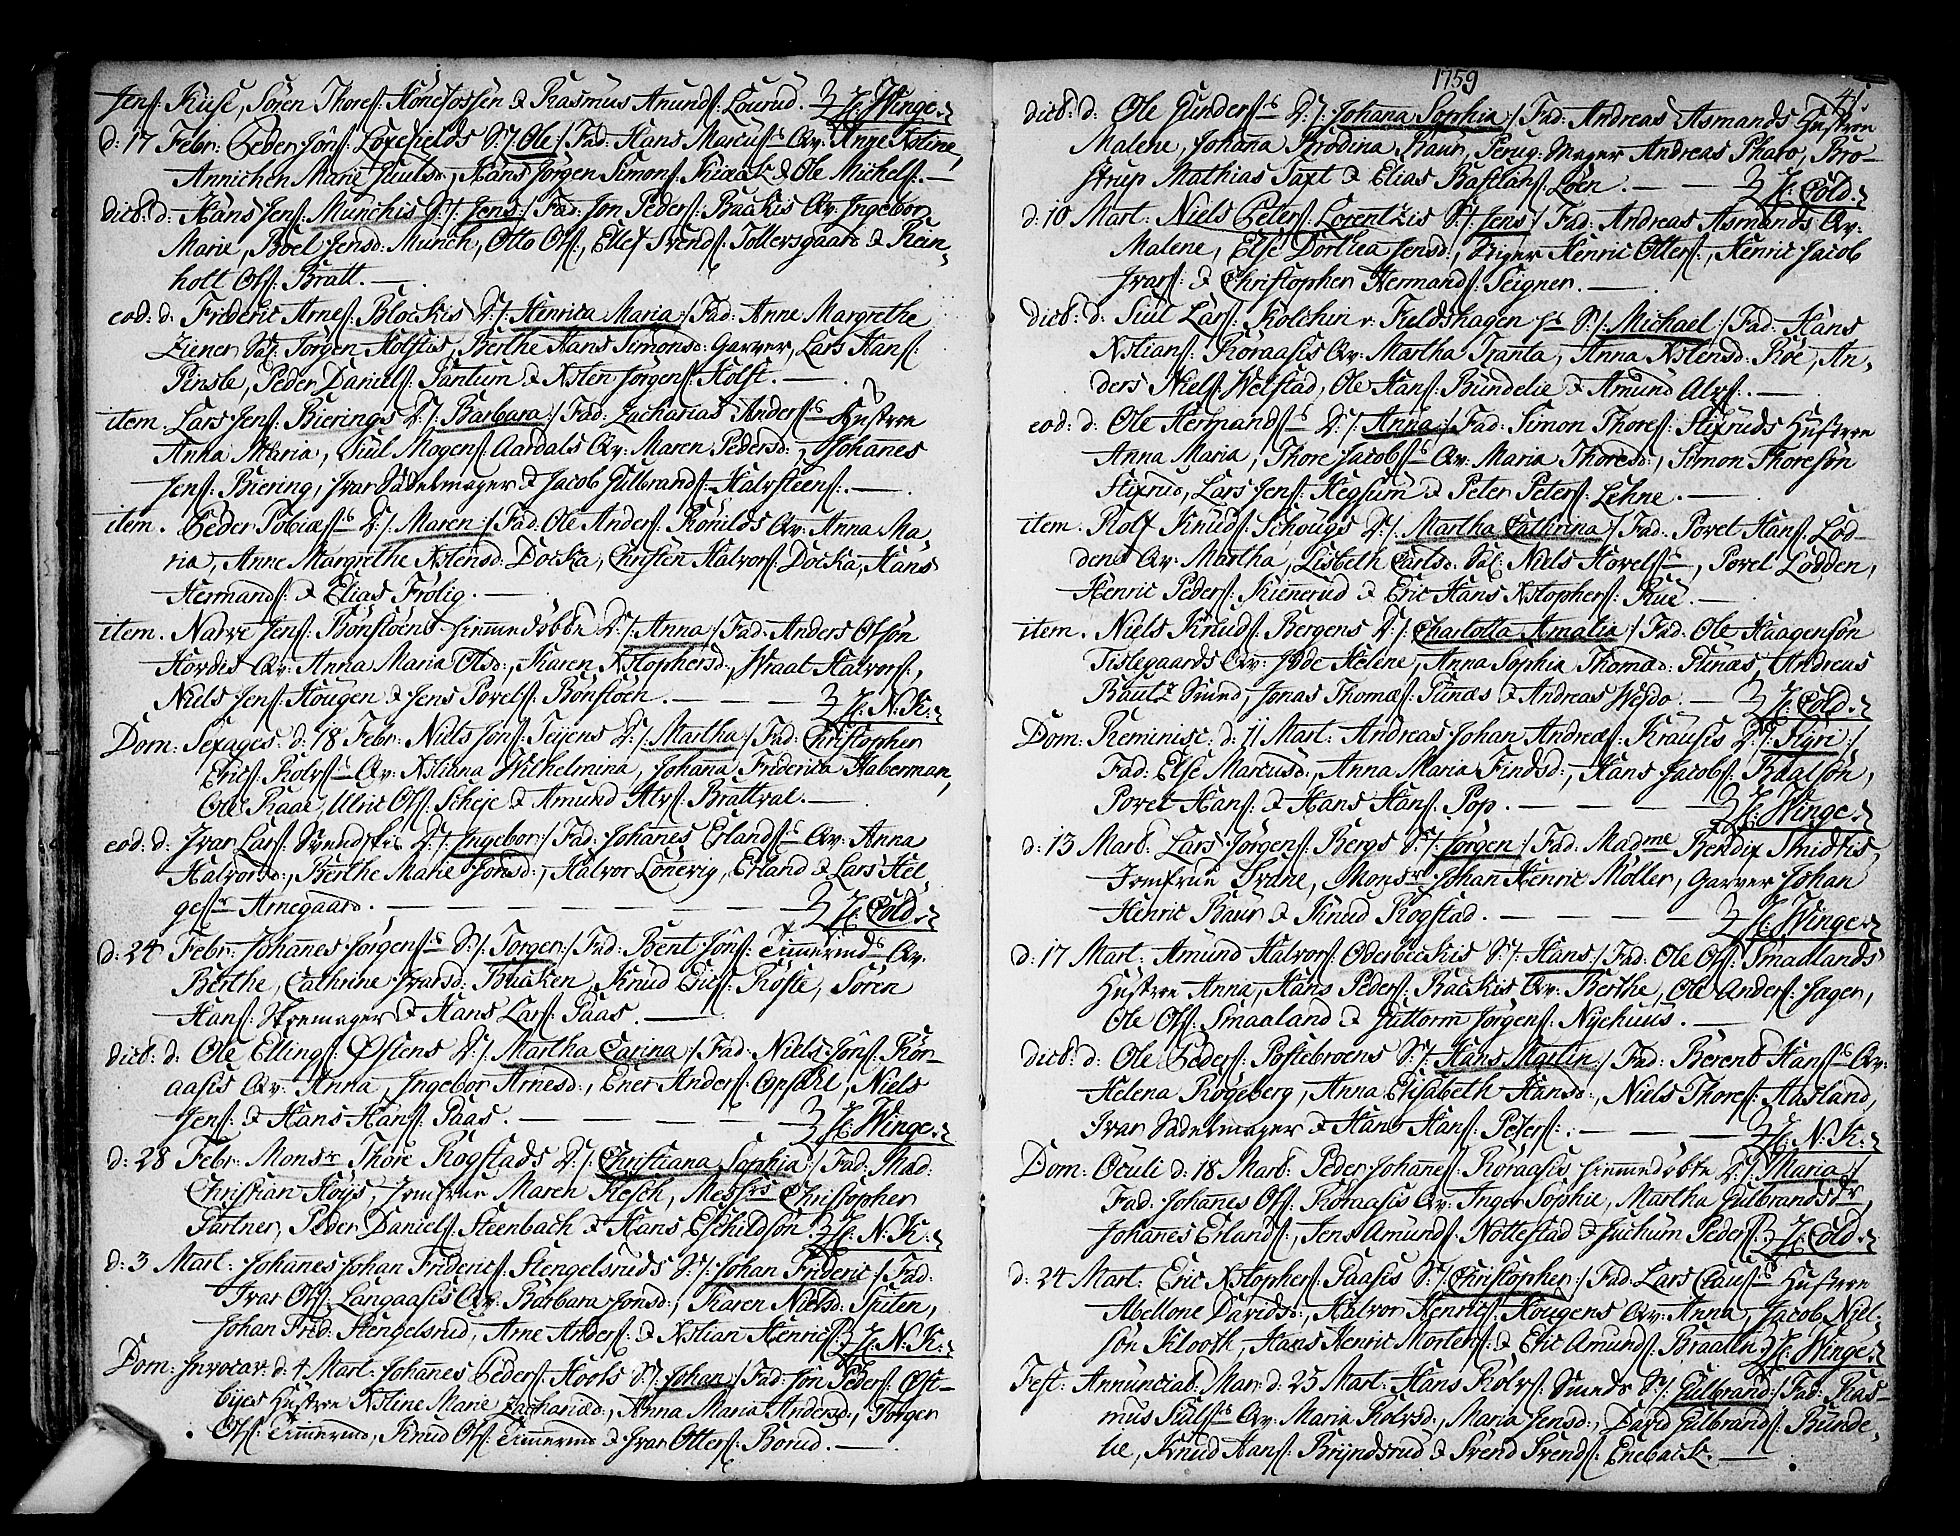 Jens: Kiise, Sören Thores: Hönefossen & Rasmus Anunds: Lourud. H: Winge.
d: 17 Febr: Peder Jöns: Loxefields S:/: Ole :/ Fad: Hans Marcus: Qv: Anne Xstine,
Annichen Marie Juulsd:, Hans Jörgen Simons: Kixat & Ole Michels:
died: d: Hans Jens: Munchis S:/: Jens :/ Fad: Jon Peders: Backis Qv: Ingebor
Marie, Boel Jensd: Munch, Otto Ols:, Ellef Svends: Tollersgaard & Rein-
holt Ols: Bratt.
eod: d: Frideric Arnes: Blockis D:/: Henrica Maria :/ Fad: Anne Margrethe
Ziener Sal: Jörgen Holstis, Berthe Hans Simonsd: Garver, Lars Hans:
Pinsle, Peder Daniels: Tantum & Xsten Jörgens: Holst.
item. Lars Jens: Bierings D:/: Barbara :/ Fad: Zacharias Anders: Hustroe
Anna Maria, Juul Mogens: Aardals Qv: Maren Pedersd:, Johanes
Jens: Biering, Ivar Sadelmager & Jacob Gulbrands: Halvsteens:
item. Peder Tobias: D:/: Maren :/ Fad: Ole Anders: Rönilds Qv: Anna Ma-
ria, Anne Margrethe Xstensd: Docka, Christen Halvors: Docka, Hans
Hermands: & Elias Frölig.
item. Narve Jens: Bönstöens hiemedöbte D:/: Anna :/ Fad: Anders Olsön
Hordes Qv: Anna Maria Olsd:, Karen Xstophersd:, Wraal Halvors:,
Niels Jens: Hougen & Jens Povels: Bönstöen. H: N. K:
Dom: Sexages: d: 18 Febr: Niels Jöns: Teijens D:/: Martha :/ Fad: Christopher
Erics: Rolvs: Qv: Xstiana Wilhelmina, Johana Friderica Haberman,
Ole Baar, Ulric Ols: Scheje & Amund Alvs: Brattval.
eod: d: Ivar Lars: Svendskis D:/: Ingebor :/ Fad: Johanes Erlands: Qv: Anna
Halvorsd:, Berthe Marie Jonsd:, Halvor Lönevig, Erland & Lars Hel-
ges: Arnegaard. H: Cold.
d: 24 Febr: Johannes Jörgens: S:/: Torger :/ Fad: Bent Jöns: Timermds Qv:
Berthe, Cathrine Ivarsd: Buaken, Knud Erics: Röste, Sören
Hans: Skoemager & Hans Lars: Paas.
died: d: Ole Ellings: Östens D:/: Martha Carina :/ Fad: Niels Jöns: Rör-
aasis Qv: Anna, Ingebor Arnesd:, Ener Anders: Opsahl, Niels
Jens: & Hans Hans: Paas. H: Winge.
d: 28 Febr: Monsr Thore Rogstads D:/: Christiana Sophia :/ Fad: Mad:
Christian Hoijs, Jomfrue Maren Resch, Messrs Christopher
Gartner, Peder Daniels: Steenbach & Hans Eschildsön. H: N. K:
d: 3 Mart: Johanes Johan Friderics: Hengelsruds S:/: Johan Frideric :/ Fad:
Ivar Ols: Langaasis Qv: Barbara Jonsd:, Karen Nielsd: Spiten,
Johan Frid: Hengelsrud, Arne Anders: & Xstian Henrics: H: N. K:
Dom: Invocav: d: 4 Mart: Johanes Peders: Hoels S:/: Johan :/ Fad: Jon Peders: Öst-
byes Hustroe Xstine Marie Zachariæd:, Anna Maria Andersd:, Torger
Ols: Timermd, Knud Ols: Timermd & Ivar Otters: Borud.
1759
41.
died: d: Ole Gunders: D:/: Johana Sophia :/ Fad: Andreas Asmands Hustroe
Malene, Johana Brodina Baur, Perugmager Andreas Pharo, Bro-
strup Mathias Taxt & Elias Bastians: Loen. H: Cold.
d: 10 Mart: Niels Peters: Lorentzis S:/: Jens :/ Fad: Andreas Asmands Qv:
Malene, Else Dorthea Jensd:, Henric Otters:, Henric Jacob
Ivars: & Christopher Hermands: Seigner.
died: d: Juul Lars: Kolchin v: Fieldshagen S:/: Michael :/ Fad: Hans
Xstians: Röraasis Qv: Martha Tranta, Anna Xstensd: Röe, An-
ders Niels: Wefstad, Ole Hans: Bundelie & Amund Alvs:
eod: d: Ole Hermands: D:/: Anna :/ Fad: Simon Thores: Stixruds Hustroe
Anna Maria, Thore Jacobs: Qv: Maria Thoresd:, Simon Thoresön
Stixrud, Lars Jens: Hegsum & Peter Peters: Lehne.
item. Rolf Knuds: Schougs D:/: Martha Cathrina :/ Fad: Povel Hans: Lod-
dens Qv: Martha, Lisbeth Carlsd: Sal: Niels Hovels:, Povel Lodden,
Henric Peders: Kienerud & Eric Hans Xstophers: Rue.
item. Niels Knuds: Bergens D:/: Charlotta Amalia :/ Fad: Ole Haagensön
Tislegaards Qv: Helene, Anna Sophia Thomæd: Funæs, Andreas
Bautz Smed, Jonas Thomæs: Funæs & Andreas Wejdo. H: Cold.
Dom: Reminisc: d: 11 Mart: Andreas Johan Andreæs: Krausis D:/: Sigri :/
Fad: Else Marcusd:, Anna Maria Findsd:, Hans Jacobs: Baalsön,
Povel Hans: & Hans Hans: Pop. H: Winge.
d: 13 Mart: Lars Jörgens: Bergs S:/: Jörgen :/ Fad: Madme Bendix Smidtis,
Jomfrue Svane, Monsr Johan Henric Möller, Garver Johan
Henric Baur & Knud Rogstad. H: Winge.
d: 17 Mart: Amund Halvors: Oderbeckis S:/: Hans :/ Fad: Ole Ols: Smadlands
Hustroe Anna, Hans Peders: Backis Qv: Berthe, Ole Anders: Hagen,
Ole Ols: Smaaland & Guttorm Jörgens: Nyehuus.
died: d: Ole Peders: Postebroens S:/: Hans Martin :/ Fad: Berent Hans: Qv:
Helena Rögeberg, Anna Elisabeth Hansd:, Niels Thores: Aasland,
Ivar Sadelmager & Hans Hans: Peters: H: N. K:
Dom: Oculi d: 18 Mart: Peder Johanes: Röraasis hiemedöbte D:/: Maria :/
Fad: Johanes Ols: Röraasis Qv: Inger Sophie, Martha Gulbrandsdr,
Johanes Erlands:, Jens Amunds: Nottestad & Jochum Peders: H: Cold.
d: 24 Mart: Eric Xstophers: Paasis S:/: Christopher :/ Fad: Lars Pauls: Hustroe
Abellone Davidsd:, Halvor Henrics: Hougens Qv: Anna, Jacob Niel-
sön Klooth, Hans Henric Mortens: & Eric Amunds: Braaten. H: Winge.
Fest: Annunciat: Mar: d: 25 Mart: Hans Rolvs: Smeds S:/: Gulbrand :/ Fad: Ras-
mus Juls: Qv: Marie Rolvsd:, Maria Jensd:, David Gulbrands: Bunde-
lie, Knud Hans: Bryndsrud & Svend Svends: Eneback.